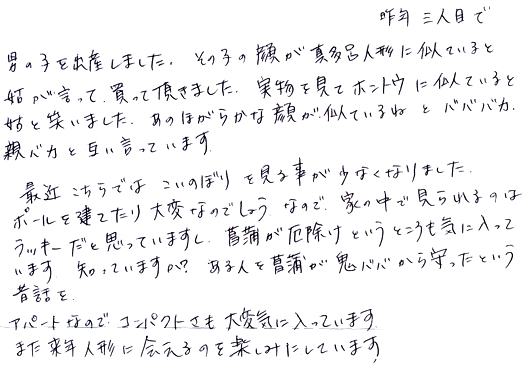 昨年 三人目で
男の子を出産しました。その子の顔が真多呂人形に似ていると
姑が言って、買って頂きました。実物を見てホントウに似ていると
姑と笑いました。あのほがらかな顔が似ているねと バババカ、
親バカと互い言っています。
最近 こちらでは こいのぼりを見る事が少なくなりました。
ポールを建てたり大変なのでしょう。なので、家の中で見られるのは
ラッキーだと思っていますし、菖蒲が厄除けというところも気に入って
います。知っていますか? ある人を菖蒲が鬼ババから守ったという
昔話を。
アパートなので コンパクトさも大変気に入っています。
また来年人形に会えるのを楽しみにしています。